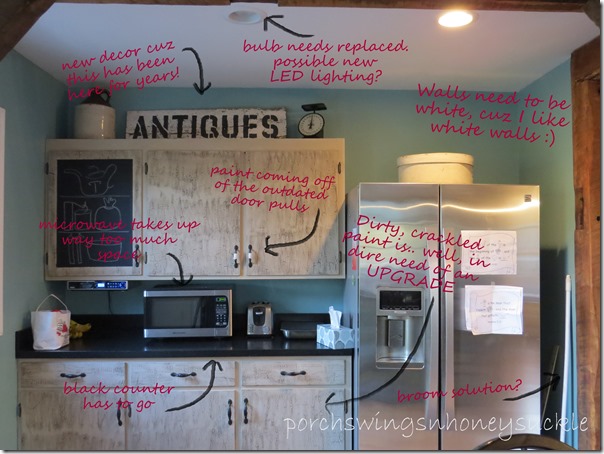 new decor cuz
this has been
here for years!
bulb needs replaced.
possible new
LED lighting?
Walls need to be
white, cuz I like
white walls :)
ANTIQUES
paint coming off
of the outdated
door pulls
microwave takes up
way too much
space
Dirty, crackled
paint is.. well, in
dire need of an
UPGRADE
black counter
has to go
broom solution?
porchswingsnhoneysuckle